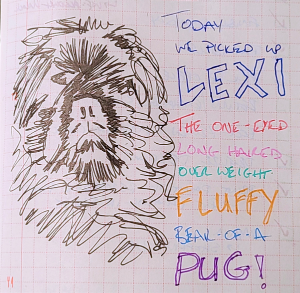 TODAY
WE PICKED UP
LEXI
THE ONE-EYED
LONG HAIRED
OVER WEIGHT
FLUFFY
BEAR-OF-A
PUG!